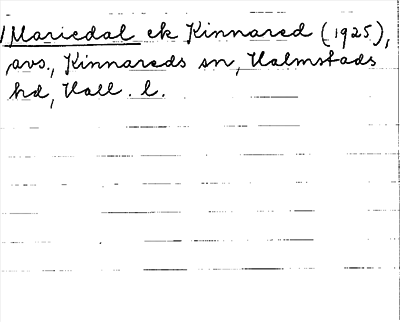 Mariedal ek Kinnared (1925),
avs., Kinnareds sn, Halmstads
hd, Hall. l.